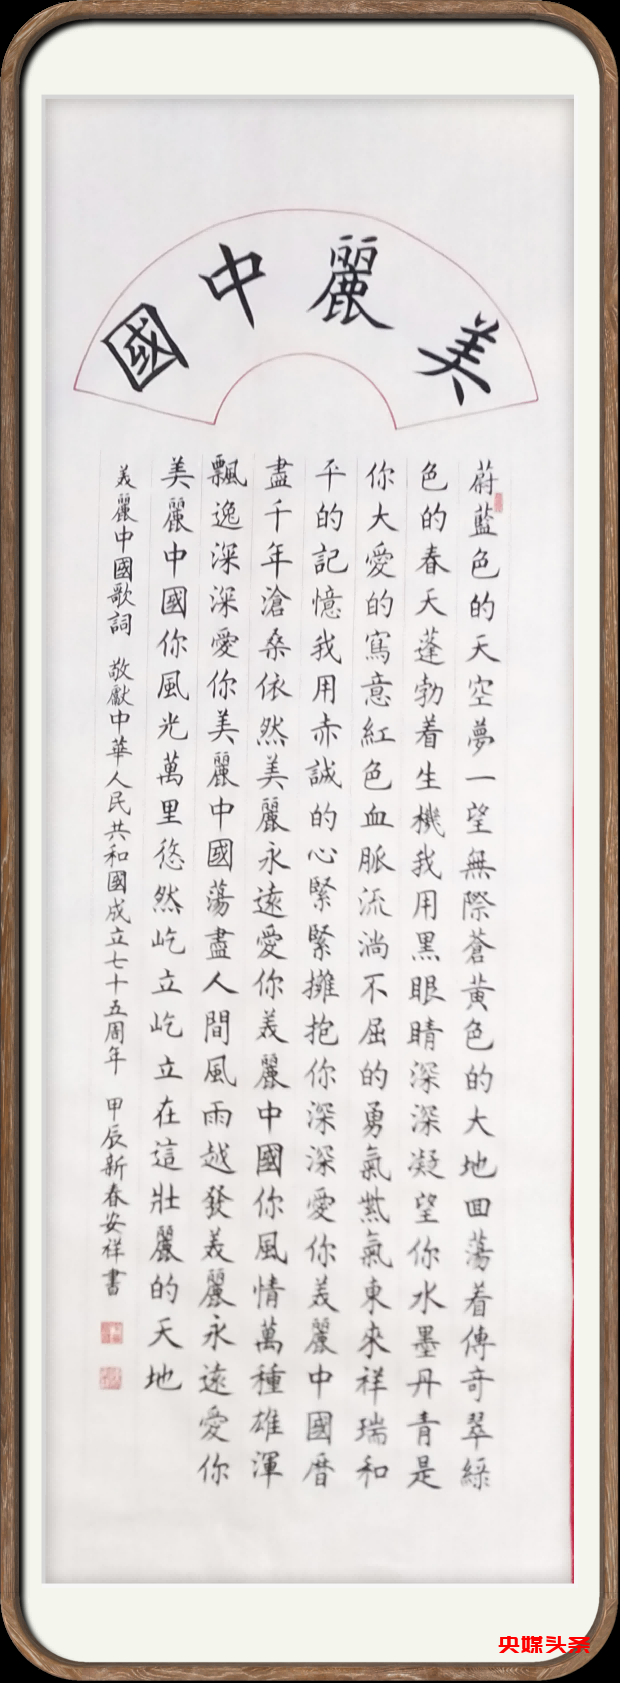 美麗中國
蔚藍色的天空夢一望無際蒼黃色的大地回蕩着傳奇翠綠
色的春天蓬勃着生機我用黑眼睛深深凝望你水墨丹青是
你大愛的寫意紅色血脈流淌不屈的勇氣紫氣東來祥瑞和
平的記憶我用赤誠的心緊緊擁抱你深深愛你美麗中國曆
盡千年滄桑依然美麗永遠愛你美麗中國你風情萬種雄渾
飄逸深深愛你美麗中國蕩盡人間風雨越發美麗永遠愛你
美麗中國你風光萬里悠然屹立屹立在這壯麗的天地
美麗中國歌詞 敬獻中華人民共和國成立七十五周年 甲辰新春安祥書
央媒头条